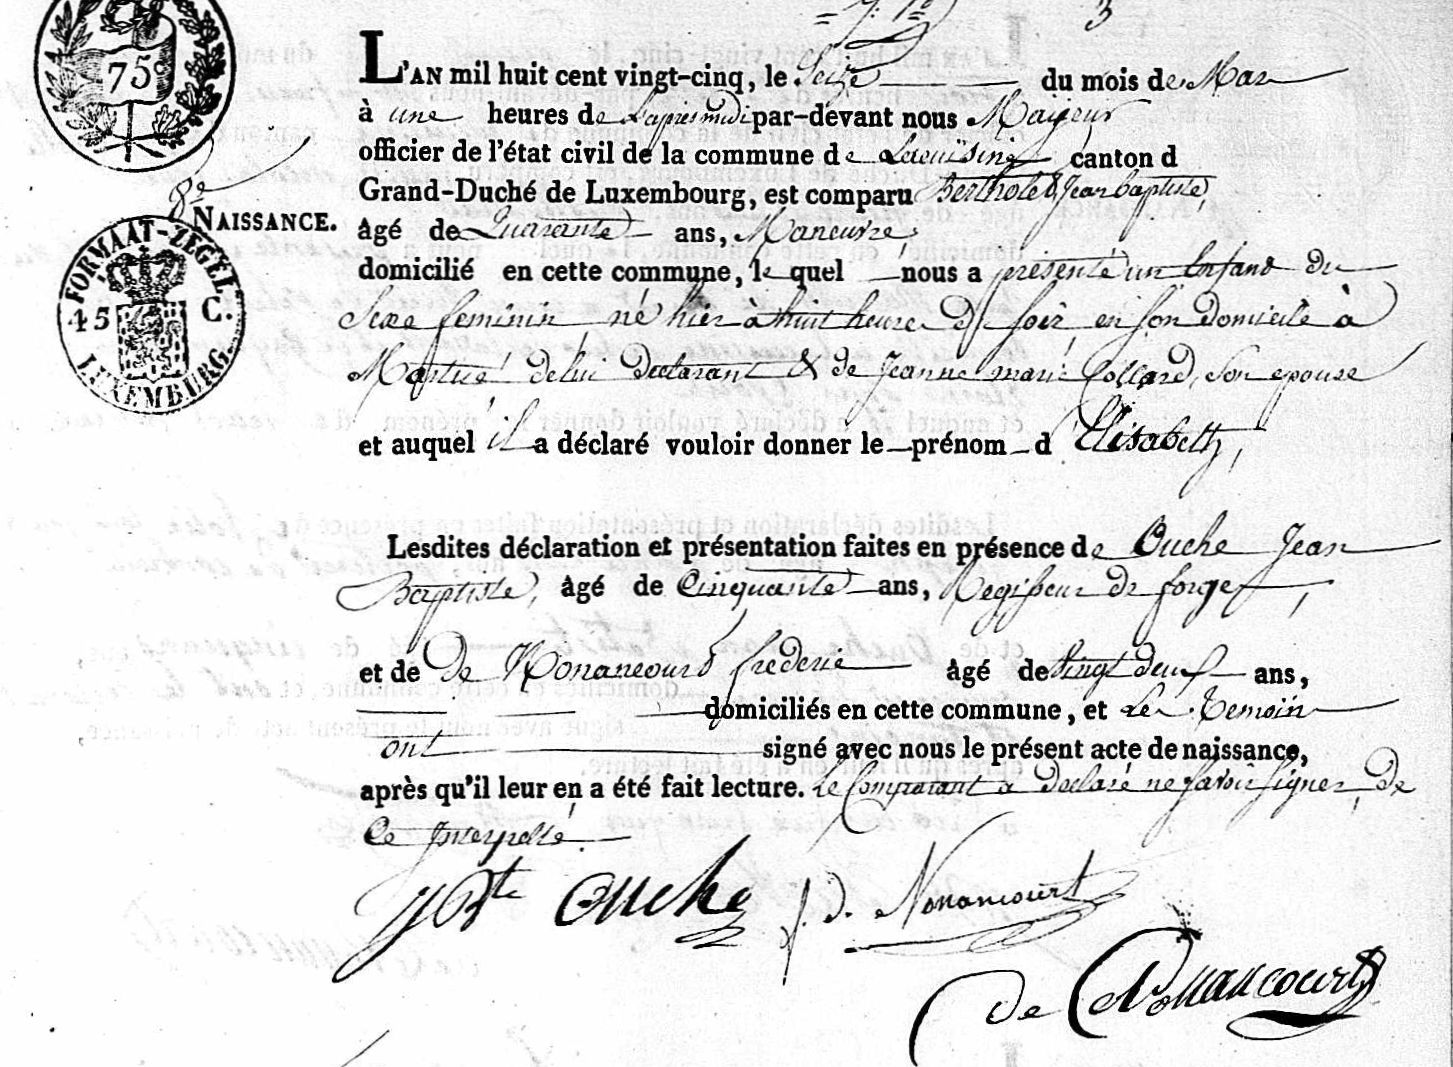 3
75
L'AN mil huit cent vingt-cinq, le Seize du mois de Mar
à une heures de L'apresmidi par-devant nous Mayeur
officier de l'état civil de la commune de canton d
8e
NAISSANCE.
Grand-Duché de Luxembourg, est comparu Bertholet Jean baptiste,
âgé de Quarante ans, Maneuvre,
FORMAAT-ZEGEL
45 C.
LUXEMBURG.
domicilié en cette commune, le quel nous a présenté un Enfant du
Sexe feminin né hier a huit heure du soir en son domicile à
delui declarant & de Jeanne marie Collard, Son epouse
et auquel il a déclaré vouloir donner le prénom d'Elisabeth,
Lesdites déclaration et présentation faites en présence de Ouche Jean
Baptiste, âgé de Cinquante ans, Regisseur de forges,
et de de Nonancourt frederic âgé de Vingt deux ans,
domiciliés en cette commune, et Les Temoin
ont signé avec nous le présent acte de naissance,
après qu'il leur en a été fait lecture. Le Comparant a declaré ne savoir signer, De
Ce Interpellé.
JBte Ouche f. d. Nonancourt
De Nonancourt